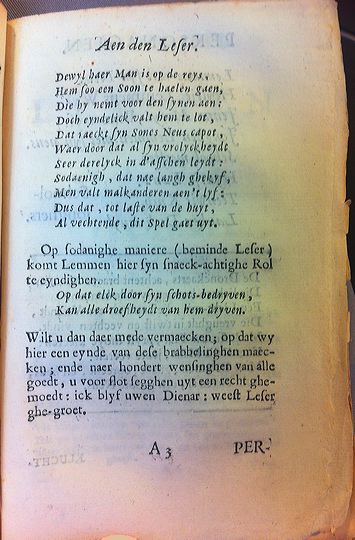 Aen den Leser.
Dewyl haer Man is op de reys,
Hem soo een Soon te haelen gaen,
Die hy nemt voor den synen aen:
Doch eyndelick valt hem te lot,
Dat raeckt syn Sones Neus capot,
Waer door dat al syn vrolyckheydt
Seer derelyck in d'asschen leydt:
Sodaenigh, dat nae langh ghekyf,
Men valt malkanderen aen't lyf:
Dus dat, tot laste van de huyt,
Al vechtende, dit Spel gaet uyt.
Op sodanighe maniere (beminde Leser)
komt Lemmen hier syn snaeck-achtighe Rol
te eyndighen.
Op dat elck door syn schots-bedryven,
Kan alle droefheydt van hem dryven.
Wilt u dan daer mede vermaecken; op dat wy
hier een eynde van dese brabbelinghen maec-
ken; ende naer hondert wenschinghen van alle
goedt, u voor slot segghen uyt een recht ghe-
moedt: ick blyf uwen Dienar: weest Leser
ghe-groet.
A 3 PER-